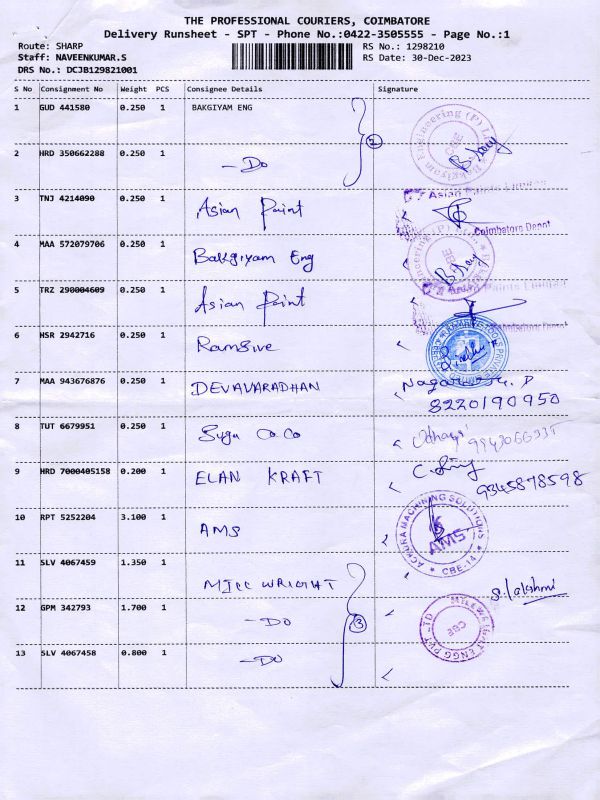 THE PROFESSIONAL COURIERS, COIMBATORE
Delivery Runsheet - SPT - Phone No.:0422-3505555 - Page No.:1
Route: SHARP
RS No.: 1298210
Staff: NAVEENKUMAR.S
RS Date: 30-Dec-2023
DRS No.: DCJB129821001
S No Consignment No Weight PCS Consignee Details Signature
1 GUD 441580 0.250 1 BAKGIYAM ENG
2 HRD 350662288 0.250 1 -Do
2
B.
3 TNJ 4214090 0.250 1 Asian Paint
Asian Paints Limited
Coimbatore Depot
4 MAA 572079706 0.250 1 Bakgiyam Eng
B.
5 TRZ 290004609 0.250 1 Asian Paint
Asian Paints Limited
Coimbatore Depot
6 HSR 2942716 0.250 1 Ramsive
7 MAA 943676876 0.250 1 DEVAVARADHAN
8220190950
8 TUT 6679951 0.250 1 Co.Co
9 HRD 7000405158 0.200 1 ELAN KRAFT
9345878598
10 RPT 5252204 3.100 1 AMS
ACKURA MACHINING SOLUTIONS
AMS
* CBE-14 *
11 SLV 4067459 1.350 1 MILL WRIGHT
S. Lakshmi
12 GPM 342793 1.700 1 -DO
3
CBE
13 SLV 4067458 0.800 1 -DO